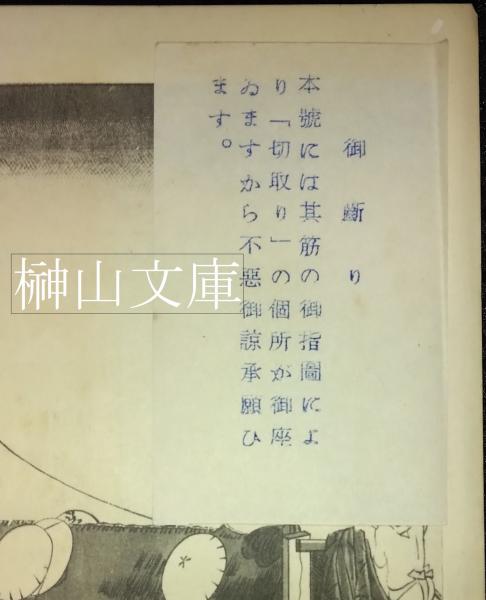 御斷り
本號には其筋の御指圖によ
り「切取り」の個所が御座
ゐますから不惡御諒承願ひ
ます。
榊山文庫